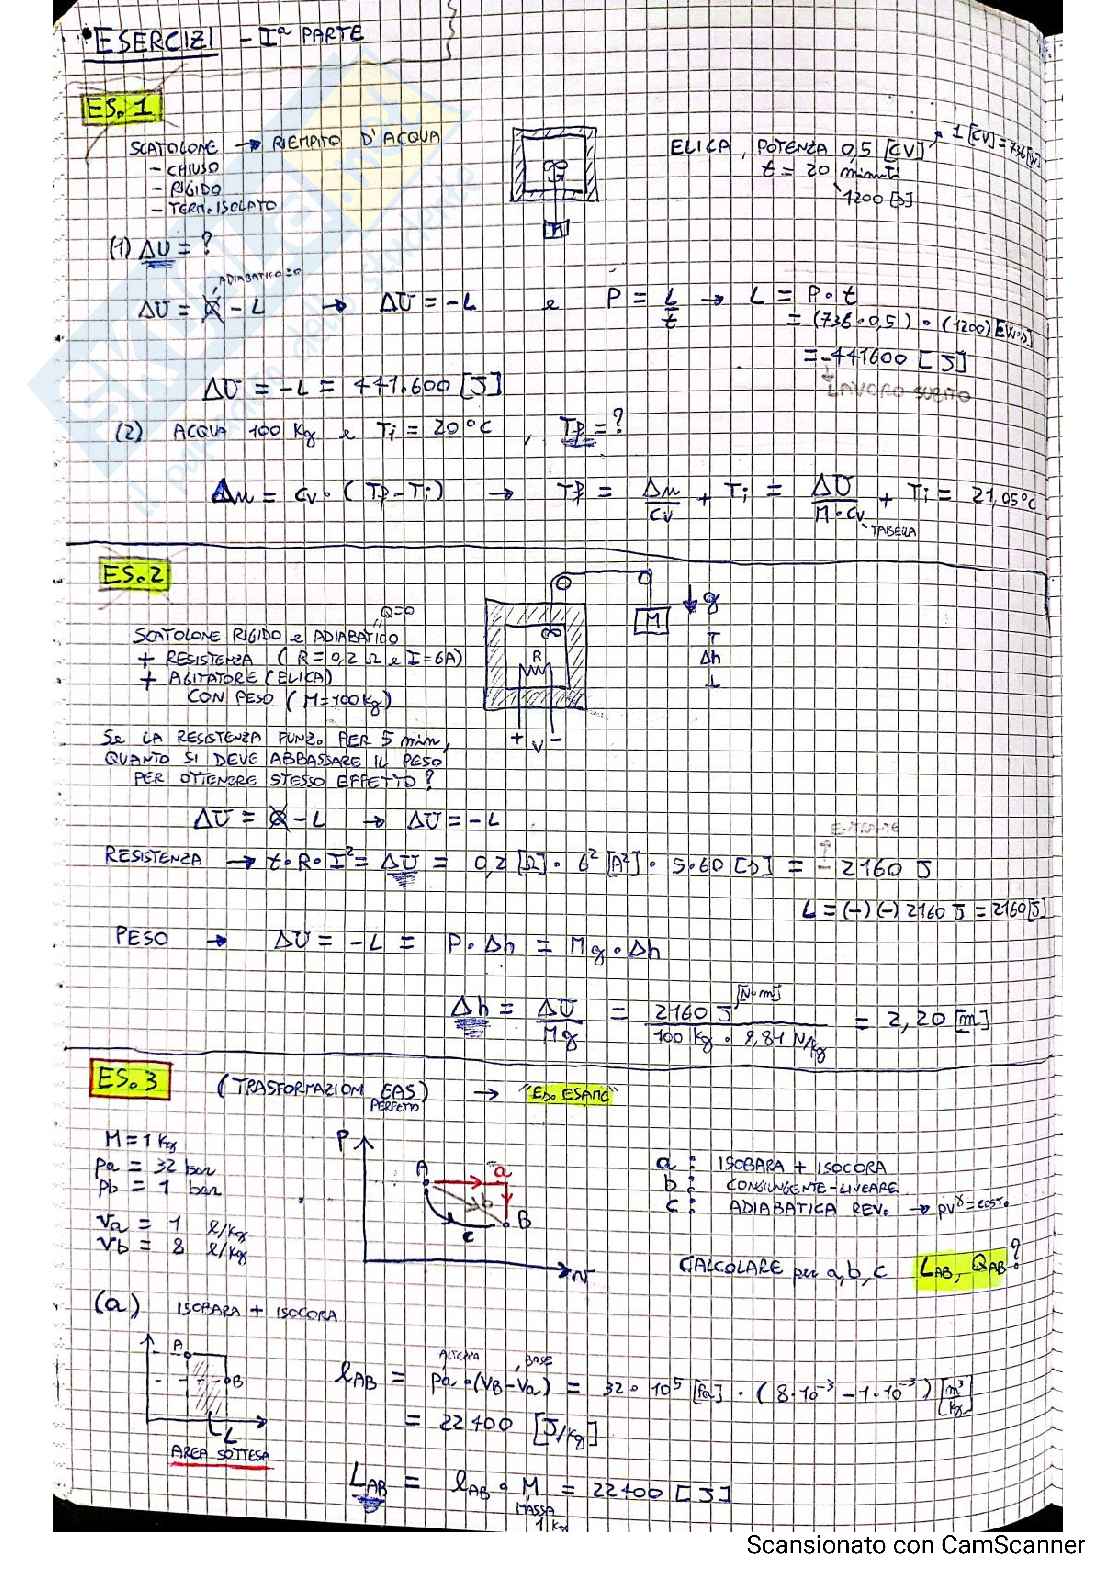 • ESERCIZI - Iª PARTE
ES. 1
SCATOLONE → RIEMPITO D'ACQUA
- CHIUSO
- RIGIDO
- TERM. ISOLATO
ELICA, POTENZA 0,5 [CV] → 1 [CV] = 736 [W]
t = 20 minuti
1200 [s]
(1) ΔU = ?
ADIABATICO = 0
ΔU = Q - L → ΔU = -L e P = L/t → L = P · t
= (736 · 0,5) · (1200) [W·s]
= -441600 [J]
LAVORO SUBITO
ΔU = -L = 441.600 [J]
(2) ACQUA 100 Kg e Ti = 20°C, Tf = ?
Δu = cv · (Tf - Ti) → Tf = Δu/cv + Ti = ΔU/M·cv + Ti = 21,05°C
TABELLA
ES. 2
Q=0
SCATOLONE RIGIDO e ADIABATICO
+ RESISTENZA (R = 0,2 Ω e I = 6A)
+ AGITATORE (ELICA)
CON PESO (M = 100 kg)
R
+ V -
M
g
Δh
Se LA RESISTENZA FUNZ. PER 5 min,
QUANTO SI DEVE ABBASSARE IL PESO
PER OTTENERE STESSO EFFETTO?
ΔU = Q - L → ΔU = -L
RESISTENZA → t · R · I² = ΔU = 0,2 [Ω] · 6² [A²] · 5·60 [s] = - 2160 J
L = (-)(-) 2160 J = 2160 [J]
PESO → ΔU = -L = P · Δh = Mg · Δh
Δh = ΔU/Mg = 2160 J [N·m]/100 kg · 9,81 N/kg = 2,20 [m]
ES. 3 (TRASFORMAZIONI GAS) → "ES. ESAME"
PERFETTO
M = 1 Kg
pa = 32 bar
pb = 1 bar
va = 1 l/kg
vb = 8 l/kg
P
A
a
b
B
c
v
a : ISOBARA + ISOCORA
b : CONGIUNGENTE-LINEARE
c : ADIABATICA REV. → pv^γ = cost.
CALCOLARE per a, b, c LAB, QAB ?
(a) ISOBARA + ISOCORA
A
B
L
AREA SOTTESA
ALTEZZA BASE
lAB = pa · (VB - Va) = 32 · 10⁵ [Pa] · (8·10⁻³ - 1·10⁻³) [m³/kg]
= 22400 [J/kg]
LAB = lAB · M = 22400 [J]
MASSA
1 kg
Scansionato con CamScanner